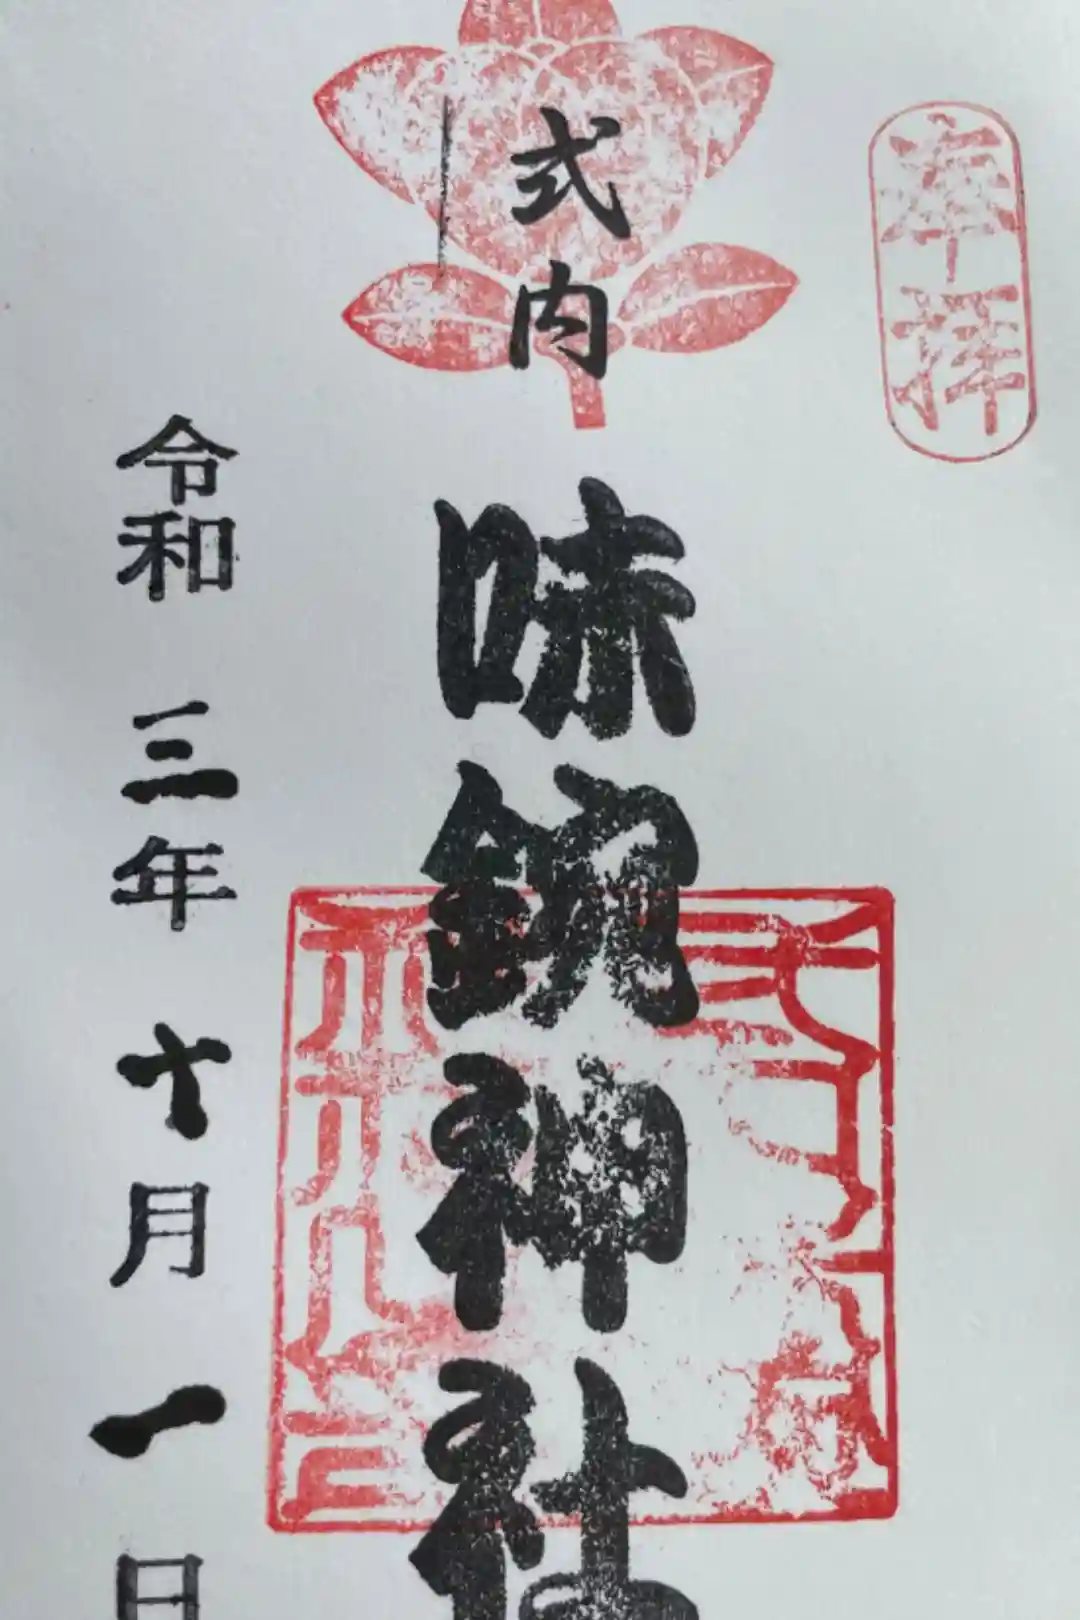 奉拝
式内
味鋺神社
令和 三年 十月 一日